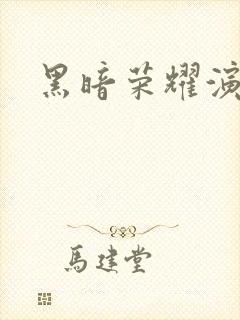 黑暗荣耀演
馬建堂